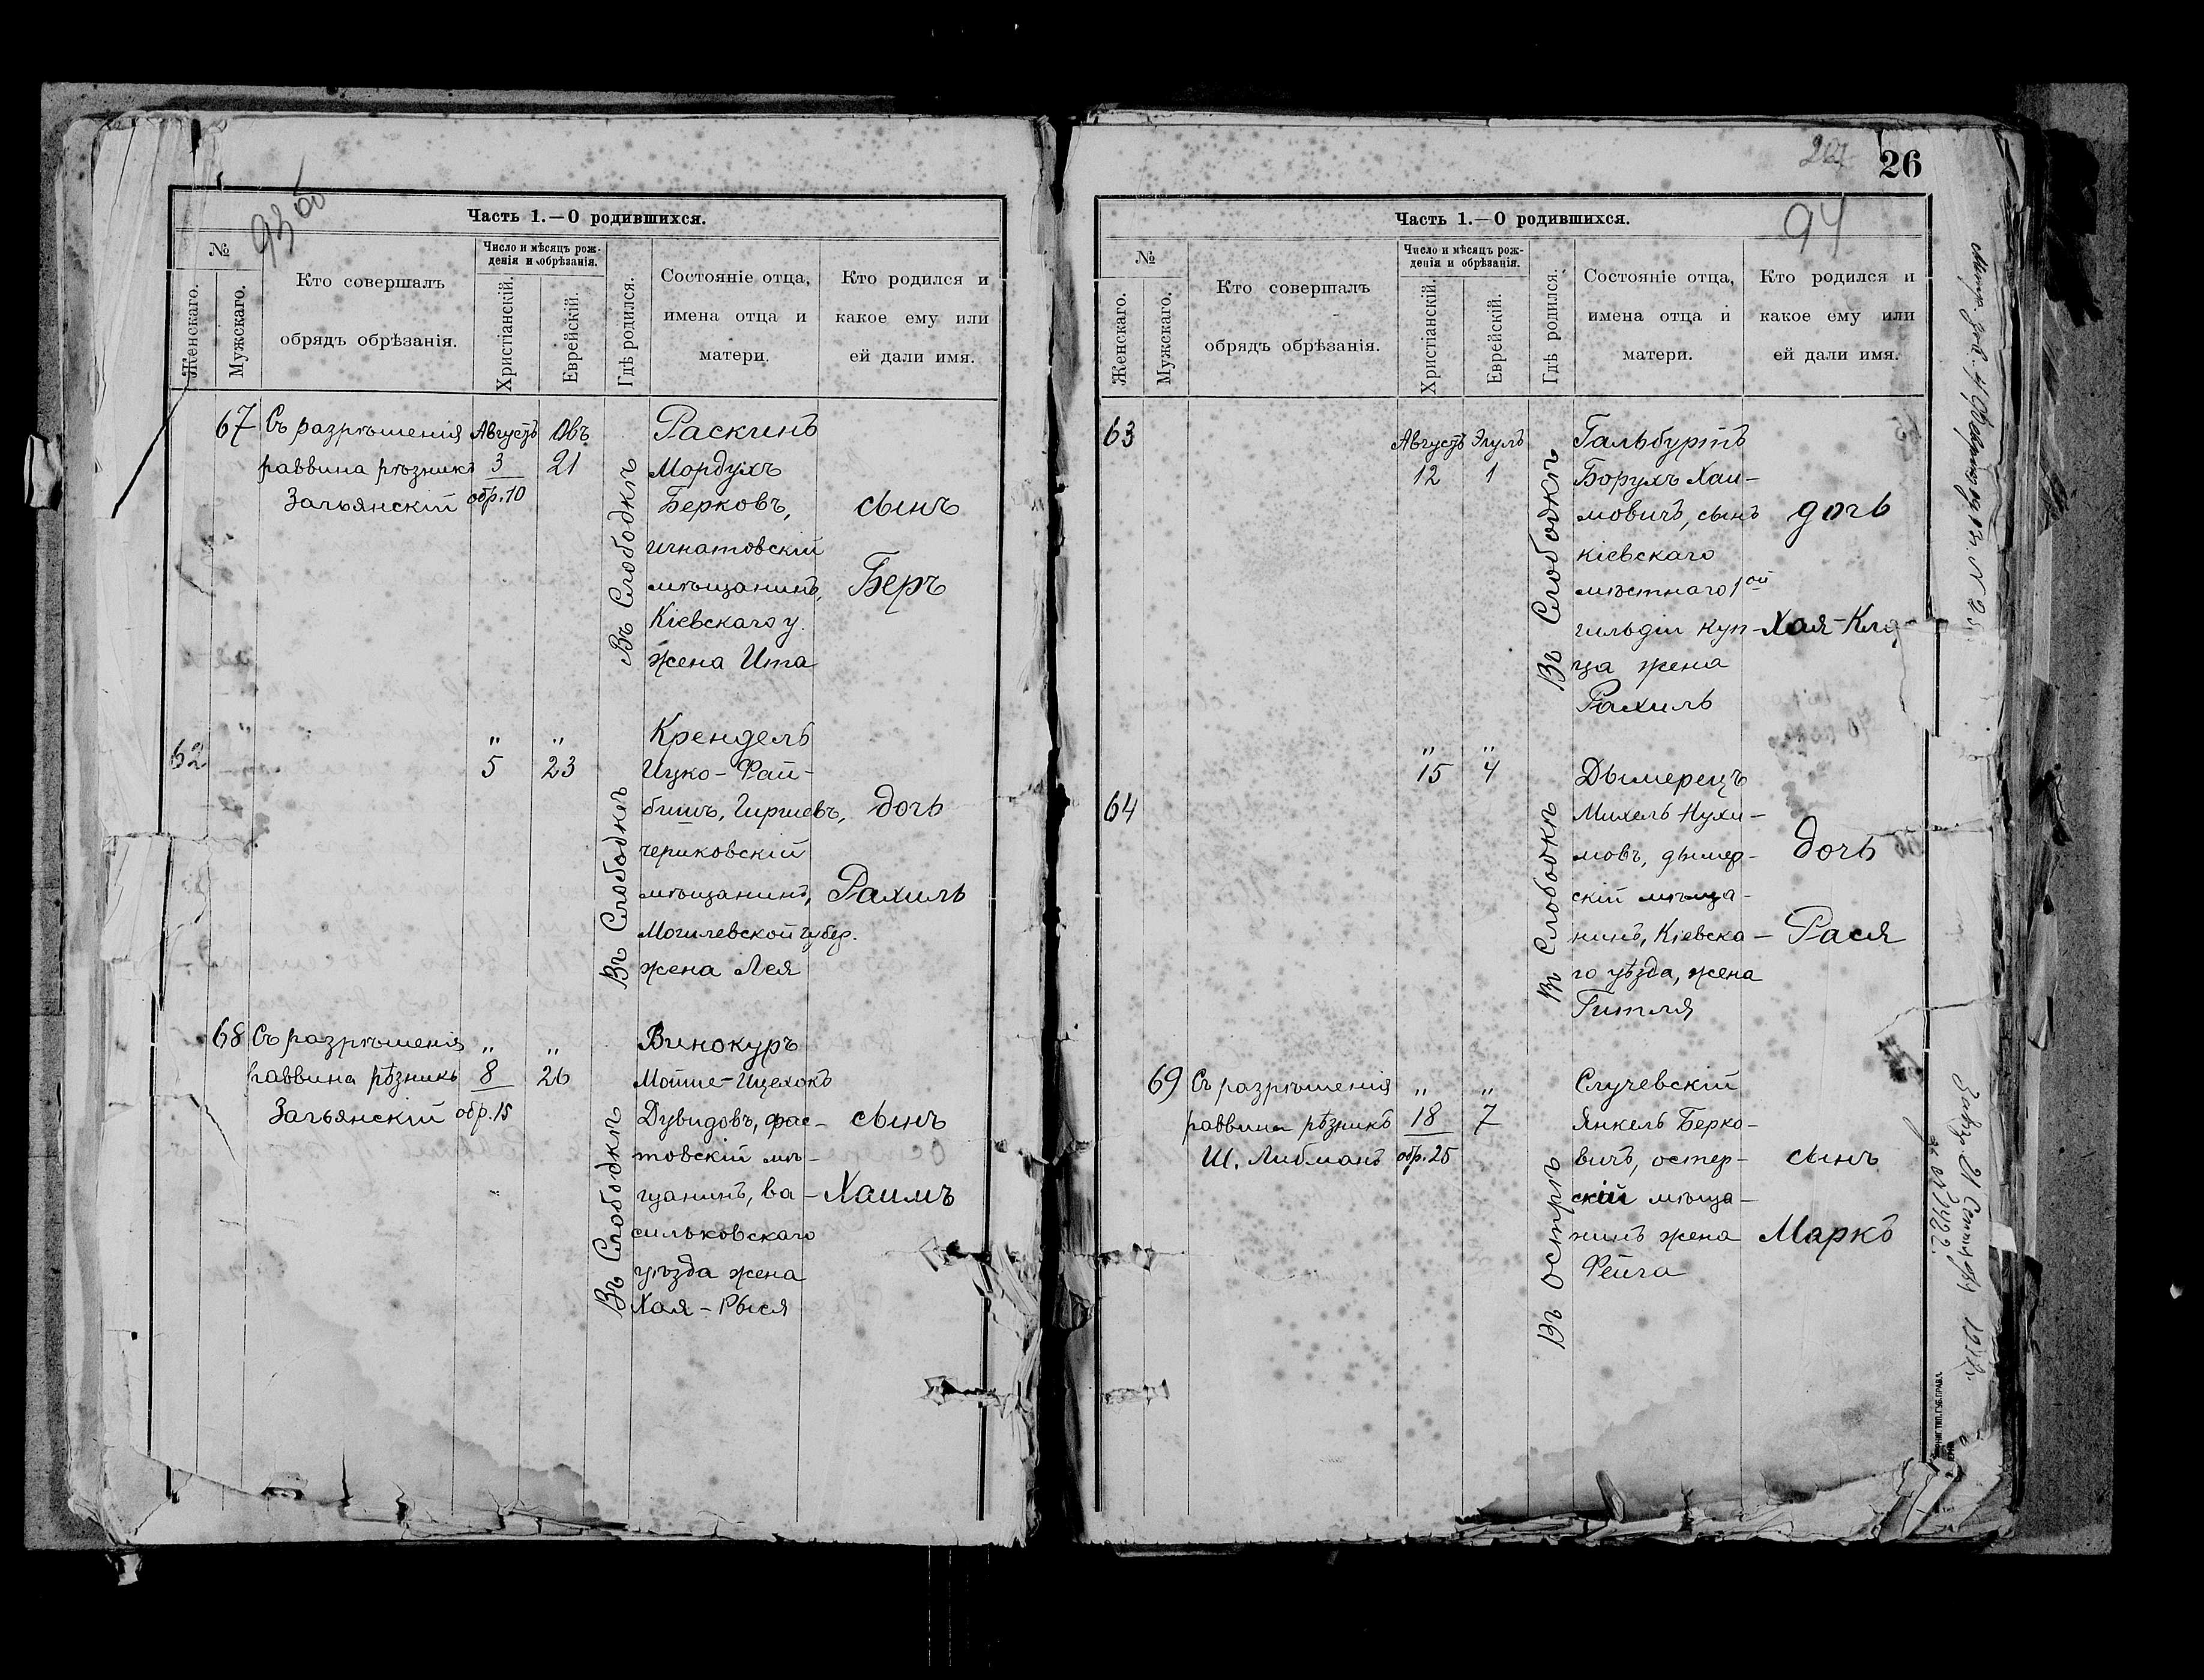 93 об
Часть 1.—О родившихся.
№
Женскаго.
Мужскаго.
Кто совершалъ
обрядъ обрѣзанія.
Число и мѣсяцъ рож-
денія и обрѣзанія.
Христіанскій.
Еврейскій.
Гдѣ родился.
Состояніе отца,
имена отца и
матери.
Кто родился и
какое ему или
ей дали имя.
67 Съ разрѣшенія Августъ Овъ
раввина рѣзникъ 3 21
Загьянскій обр. 10
Въ Слободкѣ
Раскинъ
Мордухъ
Берковъ,
игнатовскій
мѣщанинъ,
Кіевскаго у.
жена Ита
сынъ
Беръ
62
" "
5 23
Въ Слободкѣ
Крендель
Ицко-Фай-
бишъ, Гиршевъ,
чериковскій
мѣщанинъ,
Могилевской губер.
жена Лея
дочь
Рахиль
68 Съ разрѣшенія " "
раввина рѣзникъ 8 26
Загьянскій обр. 15
Въ Слободкѣ
Винокуръ
Мошше-Ицехокъ
Дувидовъ, фас-
товскій мѣ-
щанинъ, ва-
сильковскаго
уѣзда жена
Хая-Рыся
сынъ
Хаимъ
26
94
Часть 1.—О родившихся.
№
Женскаго.
Мужскаго.
Кто совершалъ
обрядъ обрѣзанія.
Число и мѣсяцъ рож-
денія и обрѣзанія.
Христіанскій.
Еврейскій.
Гдѣ родился.
Состояніе отца,
имена отца и
матери.
Кто родился и
какое ему или
ей дали имя.
63
Августъ Элулъ
12 1
Въ Слободкѣ
Гальбуртъ
Борухъ Хаи-
мовичъ, сынъ
кіевскаго
мѣстнаго 1ой
гильдіи куп-
ца жена
Рахиль
дочь
Хая-
64
" "
15 4
Въ Слободкѣ
Дымерецъ
Михель Нухи-
мовъ, дымер-
скій мѣща-
нинъ, Кіевска-
го уѣзда, жена
Гитля
дочь
Рася
69 Съ разрѣшенія " "
раввина рѣзникъ 18 7
Ш. Либманъ обр. 25
Въ Острѣ
Случевскій
Янкель Берко-
вичъ, остер-
скій мѣща-
нинъ жена
Фейга
сынъ
Маркъ